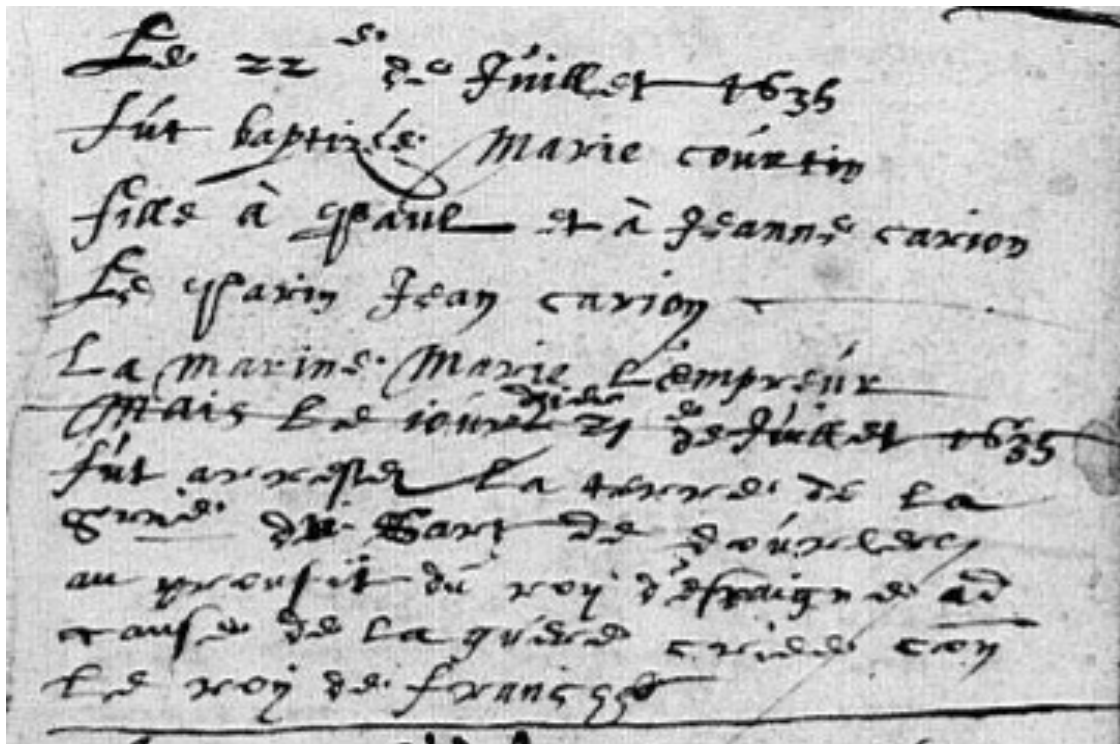 Le 22e de Juillet 1635
fut baptizée Marie courtin
fille à Paul et à Jeanne carion
Le Parin Jean carion
La marine Marie L'empreur
Mais Le iour 21 de Juillet 1635
fut arresté La terre de La
du Sart de dourlers
au proufit du roy d'espaigne ad
cause de La guere criée con
Le roy de france